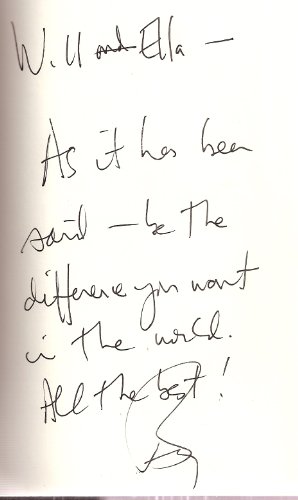 Will and Ella —
As it has been
said — be the
difference you want
in the world.
All the best!